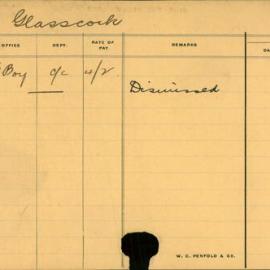 Glasscock
OFFICE DEPT. RATE OF PAY REMARKS
Boy o/c 4/2 Dismissed
W. C. PENFOLD & CO.